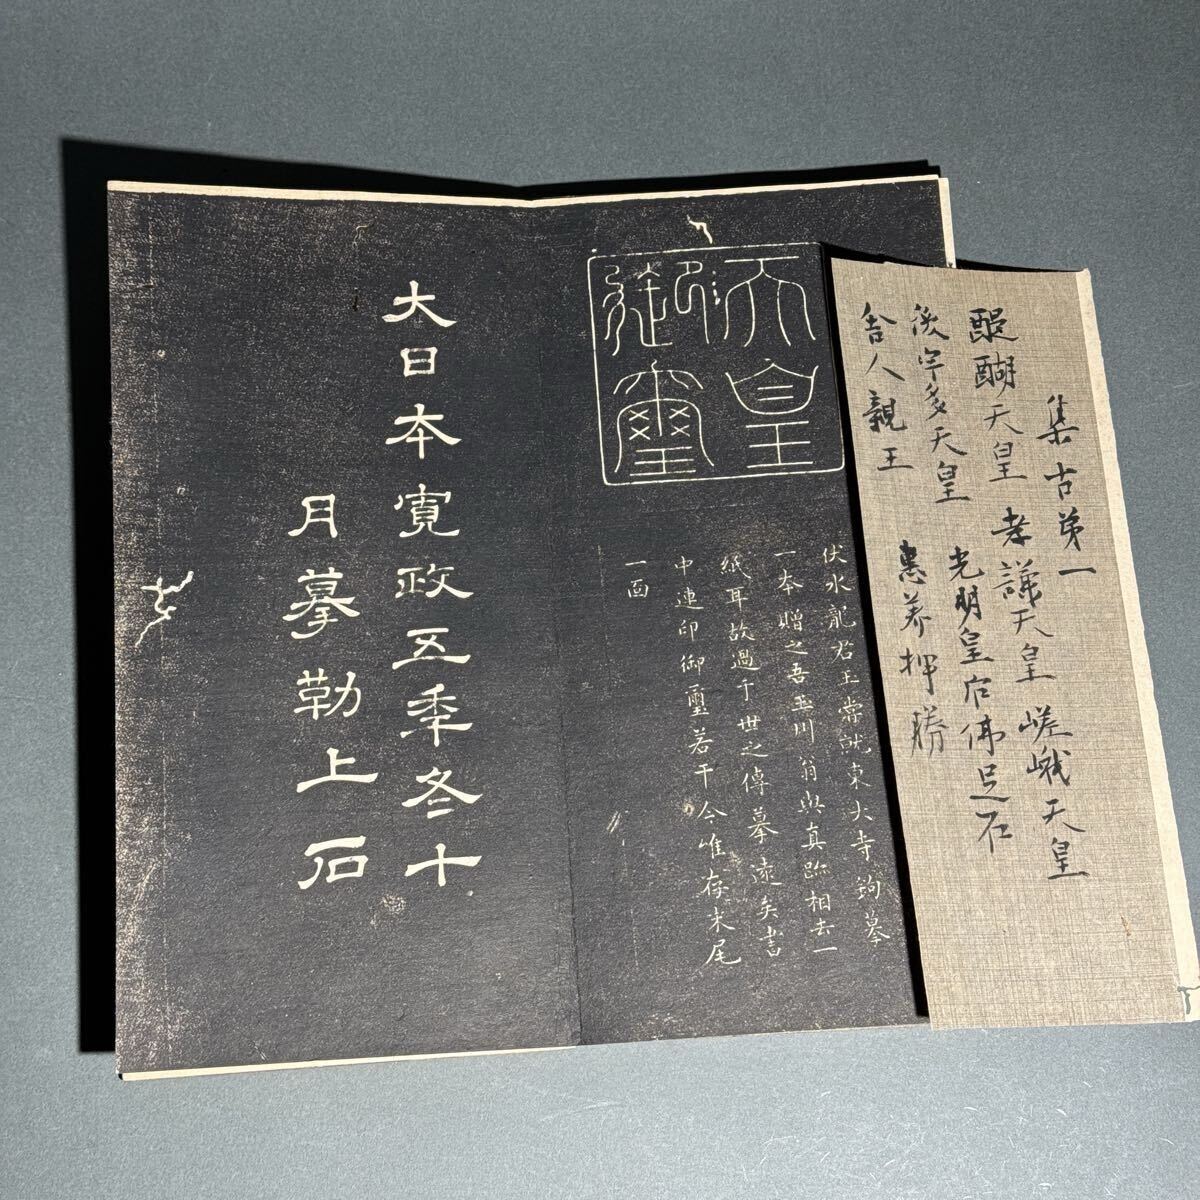 集古弟一
醍醐天皇 孝謙天皇 嵯峨天皇
後宇多天皇 光明皇后佛足石
舎人親王 惠美押勝
天皇
御璽
伏水龍君玉嘗就東大寺鉤摹
一本贈之吾玉川翁與真跡相去一
紙耳故過于世之傳摹遠矣書
中連印御璽若干今唯存末尾
一面
大日本寛政五季冬十
月摹勒上石